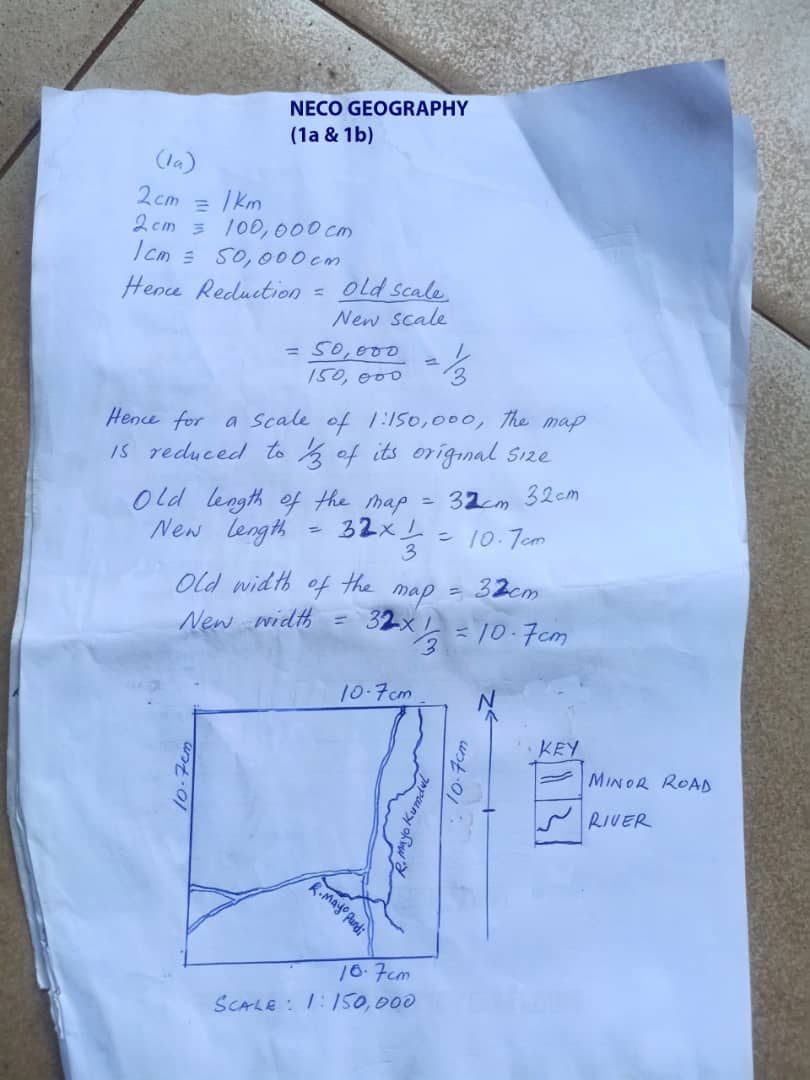 NECO GEOGRAPHY
(1a & 1b)
(1a)
2cm ≡ 1Km
2cm ≡ 100,000cm
1cm ≡ 50,000cm
Hence Reduction = Old Scale
New scale
= 50,000 = 1/3
150,000
Hence for a scale of 1:150,000, the map
is reduced to 1/3 of its original size
Old length of the map = 32cm 32cm
New length = 32 x 1/3 = 10.7cm
Old width of the map = 32cm
New width = 32 x 1/3 = 10.7cm
10.7cm
N
10.7cm
10.7cm
KEY
MINOR ROAD
RIVER
R. Mayo Kumdul
R. Mayo Pandi
10.7cm
SCALE : 1:150,000